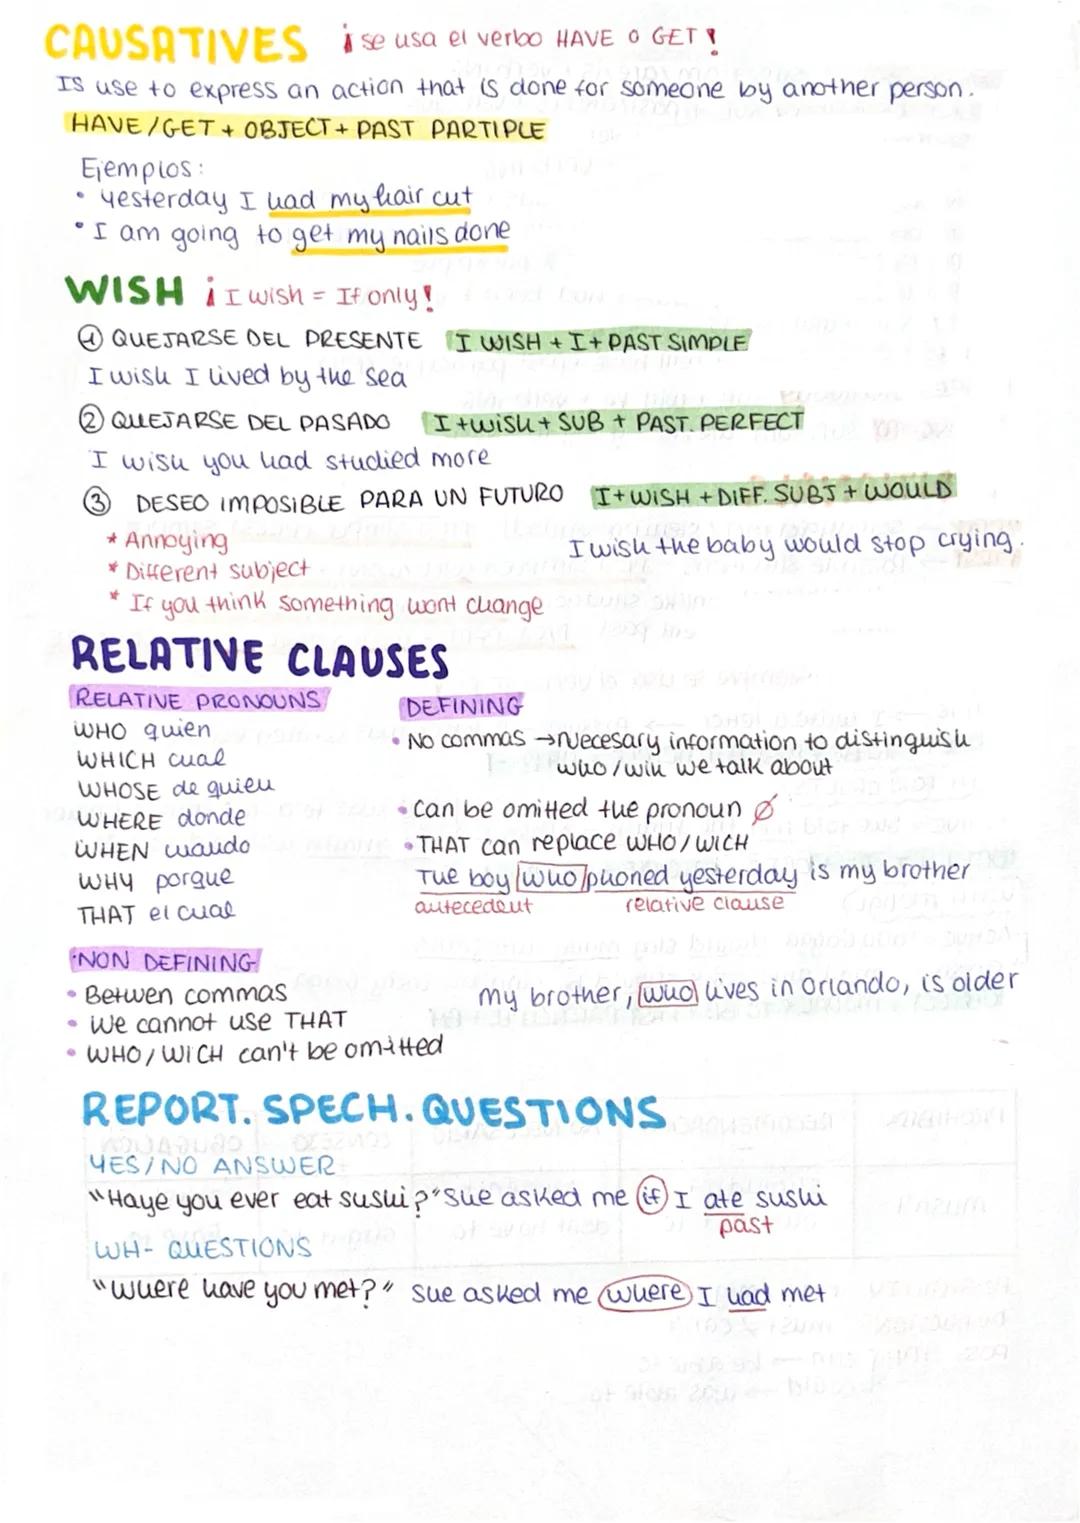 CAUSATIVES ¡se usa el verbo HAVE O GET!
IS use to express an action that is done for someone by another person.
HAVE/GET + OBJECT + PAST PARTIPLE
Ejemplos:
• Yesterday I had my hair cut
• I am going to get my nails done
WISH ¡I wish = If only!
① QUEJARSE DEL PRESENTE I WISH + I + PAST SIMPLE
I wish I lived by the sea
② QUEJARSE DEL PASADO I + wish + SUB + PAST. PERFECT
I wish you had studied more
③ DESEO IMPOSIBLE PARA UN FUTURO I + WISH + DIFF. SUBJ + WOULD
* Annoying
I wish the baby would stop crying.
* Different subject
* If you think something wont change
RELATIVE CLAUSES
RELATIVE PRONOUNS
WHO quien
WHICH cual
WHOSE de quien
WHERE donde
WHEN cuando
WHY porque
THAT el cual
DEFINING
• No commas → Necesary information to distinguish
who/wih we talk about
• Can be omitted the pronoun Ø
• THAT can replace WHO/WICH
The boy who phoned yesterday is my brother
antecedent relative clause
NON DEFINING
• Betwen commas
• We cannot use THAT
• WHO/WICH can't be omitted
my brother, who lives in Orlando, is older
REPORT. SPECH. QUESTIONS
YES/NO ANSWER
"Haye you ever eat sushi?" Sue asked me if I ate sushi
past
WH- QUESTIONS
"Where have you met?" Sue asked me where I had met